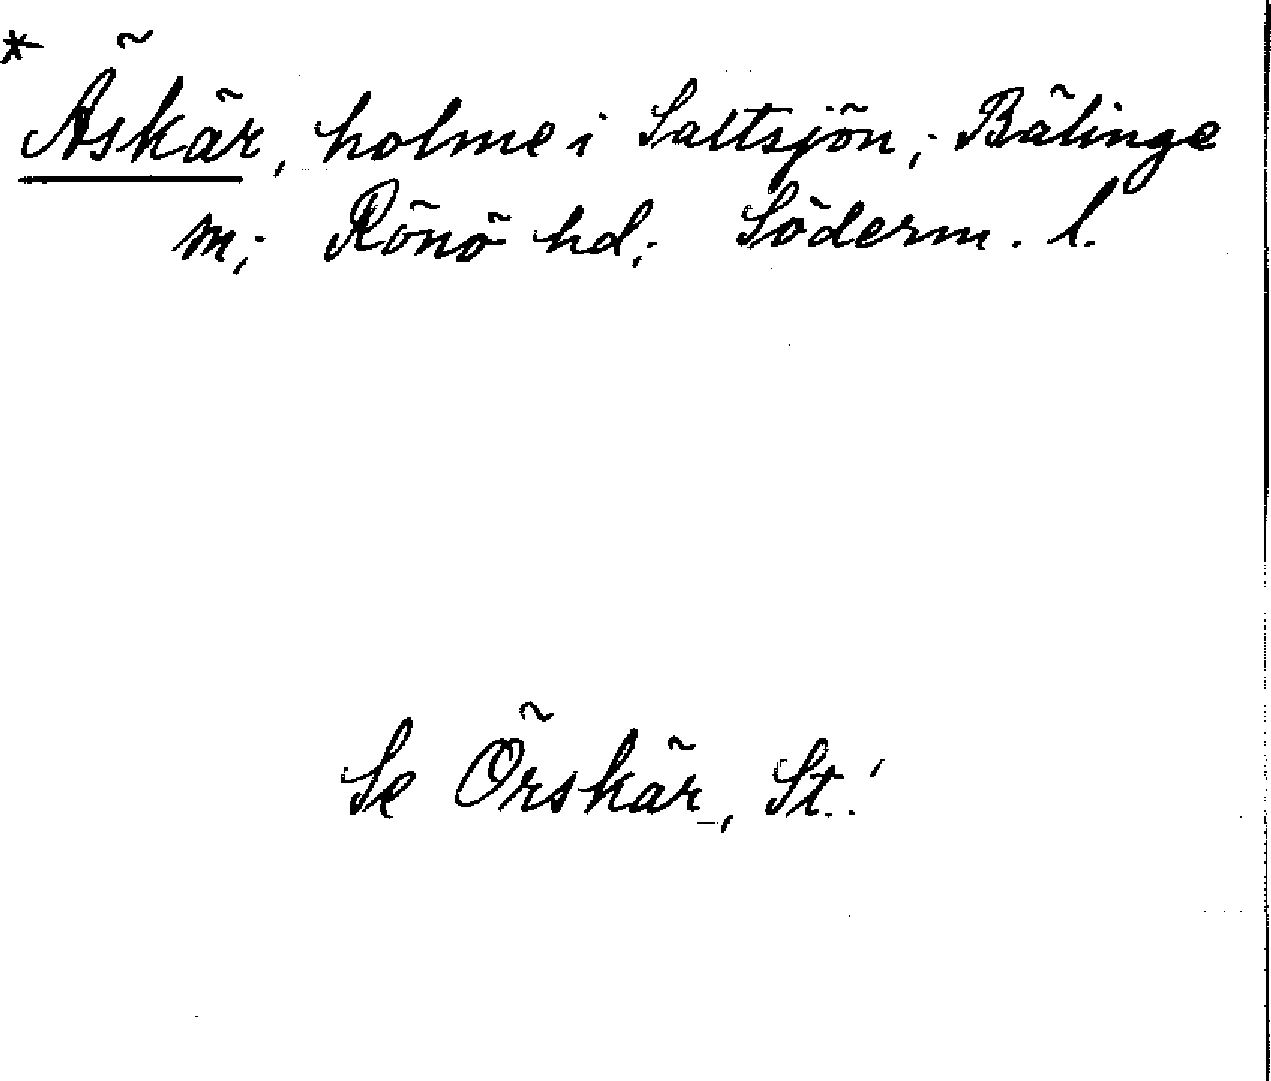 * Äskär, holme i Saltsjön; Bälinge
m; Rönö hd; Söderm. l.
Se Örskär, St.!